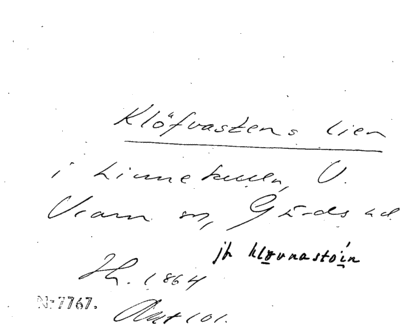 Klöfvastens lien
i Linnekulla, V.
Vram sn, Gärds hd
jfr klovnastoin
Jh. 1864
Nr 7767.
Ant 101.